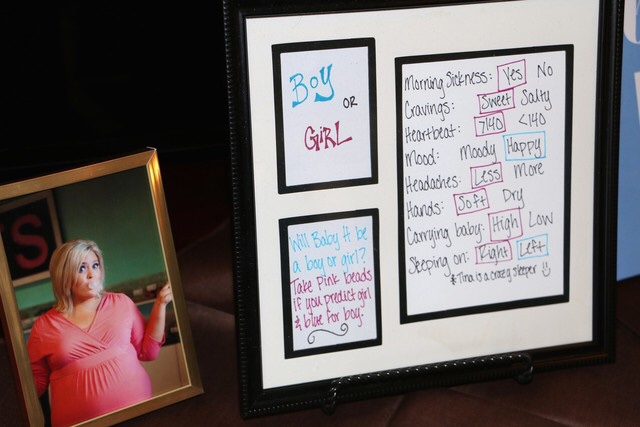 Boy
OR
GIRL
Will Baby H be
a boy or girl?
Take Pink beads
if you predict girl
& blue for boy.
Morning Sickness: Yes No
Cravings: Sweet Salty
Heartbeat: >140 <140
Mood: Moody Happy
Headaches: Less More
Hands: Soft Dry
Carrying baby: High Low
Sleeping on: Right Left
*Tina is a crazy sleeper
S